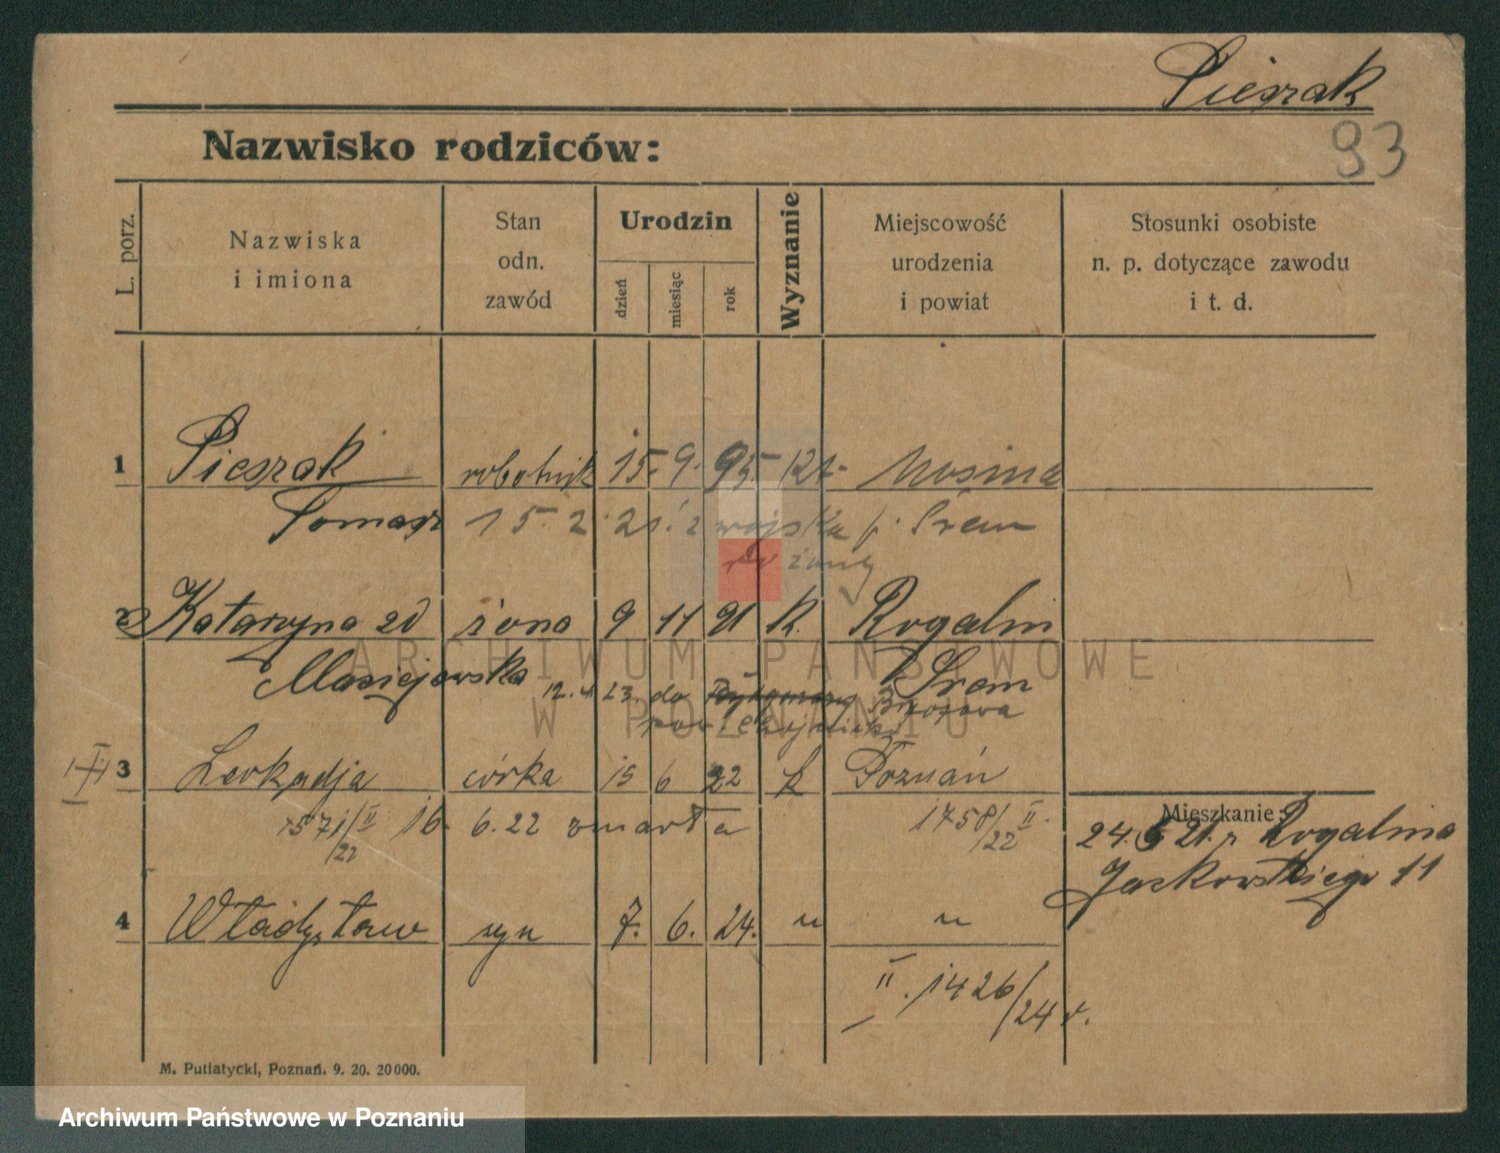 Pieszak
93
Nazwisko rodziców:
L. porz.
Nazwiska
i imiona
Stan
odn.
zawód
Urodzin
dzień
miesiąc
rok
Wyznanie
Miejscowość
urodzenia
i powiat
Stosunki osobiste
n. p. dotyczące zawodu
i t. d.
1 Pieszak robotnik 15. 9. 95. kat. Mosina
Tomasz 15. 2. 21. z wojska p. Śrem
żony
2 Katarzyna zd żona 9 11 91 k. Rogalin
Maciejewska Śrem
12. 4 23. do Brusowa
pow Chojnice
3 Leokadja córka 15 6 22 k Poznań
1571/II 16. 6. 22 zmarła 1758/II.
/22 /22
Mieszkanie:
24. 6 21. z Rogalina
Jackowskiego 11
4 Władysław syn 7. 6. 24. " "
II. 1426/24 r.
M. Putiatycki, Poznań. 9. 20. 20000.
ARCHIWUM PAŃSTWOWE
W POZNANIU
Archiwum Państwowe w Poznaniu